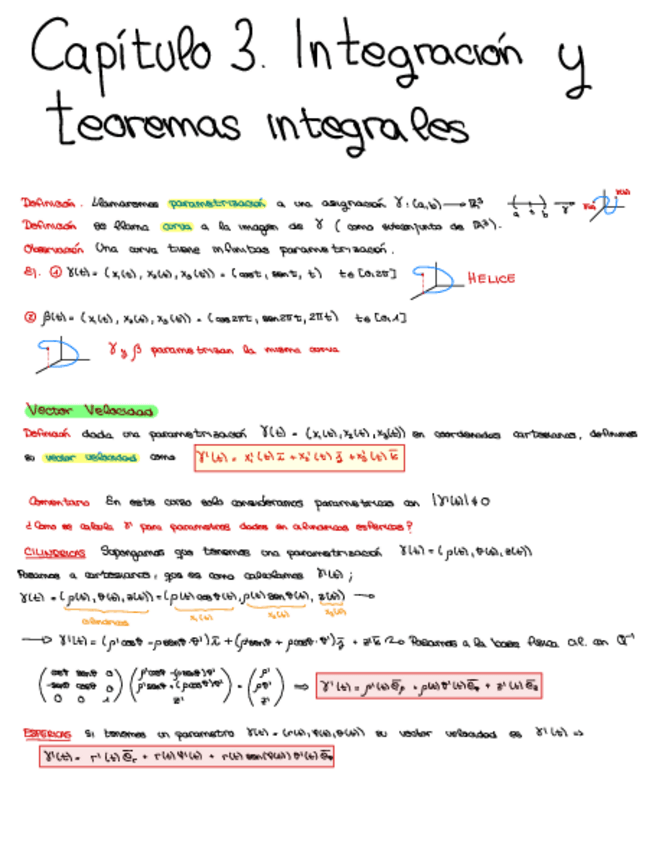 Capítulo 3. Integración y
teoremas integrales
Definición. Llamaremos parametrización a una asignación γ: (a,b) → ℝ³
a t b γ γ(a) γ(b)
Definición se llama curva a la imagen de γ (como subconjunto de ℝ³).
Observación Una curva tiene infinitas parametrización.
Ej. ① γ(t) = (x₁(t), x₂(t), x₃(t)) = (cost, sent, t) t∈[0,2π] HELICE
② β(t) = (x₁(t), x₂(t), x₃(t)) = (cos2πt, sen2πt, 2πt) t∈[0,1]
γ y β parametrizan la misma curva
Vector Velocidad
Definición dada una parametrización γ(t) = (x₁(t), x₂(t), x₃(t)) en coordenadas cartesianas, definimos
su vector velocidad como γ'(t) = x₁'(t) i + x₂'(t) j + x₃'(t) k
Comentario En este curso solo consideramos parametricas con |γ'(t)| ≠ 0
¿Como se calcula γ' para parametros dados en cilindricas esfericas?
CILINDRICAS Supongamos que tenemos una parametrización γ(t) = (ρ(t), θ(t), z(t))
Pasamos a cartesianas, que es como calculamos γ'(t);
γ(t) = (ρ(t), θ(t), z(t)) = (ρ(t) cosθ(t), ρ(t) senθ(t), z(t)) →
cilindricas x₁(t) x₂(t) x₃(t)
→ γ'(t) = (ρ'cosθ - ρsenθ·θ') i + (ρ'senθ + ρcosθ·θ') j + z' k Pasamos a la base física cil. con Q⁻¹
(cosθ senθ 0 / -senθ cosθ 0 / 0 0 1) (ρ'cosθ - (ρsenθ)θ' / ρ'senθ + (ρcosθ)θ' / z') = (ρ' / ρθ' / z') ⇒ γ'(t) = ρ'(t) e_ρ + ρ(t) θ'(t) e_θ + z'(t) e_z
ESFERICAS Si tenemos un parametro γ(t) = (r(t), φ(t), θ(t)) su vector velocidad es γ'(t) ⇒
γ'(t) = r'(t) e_r + r(t) φ'(t) + r(t) sen(φ(t)) θ'(t) e_θ